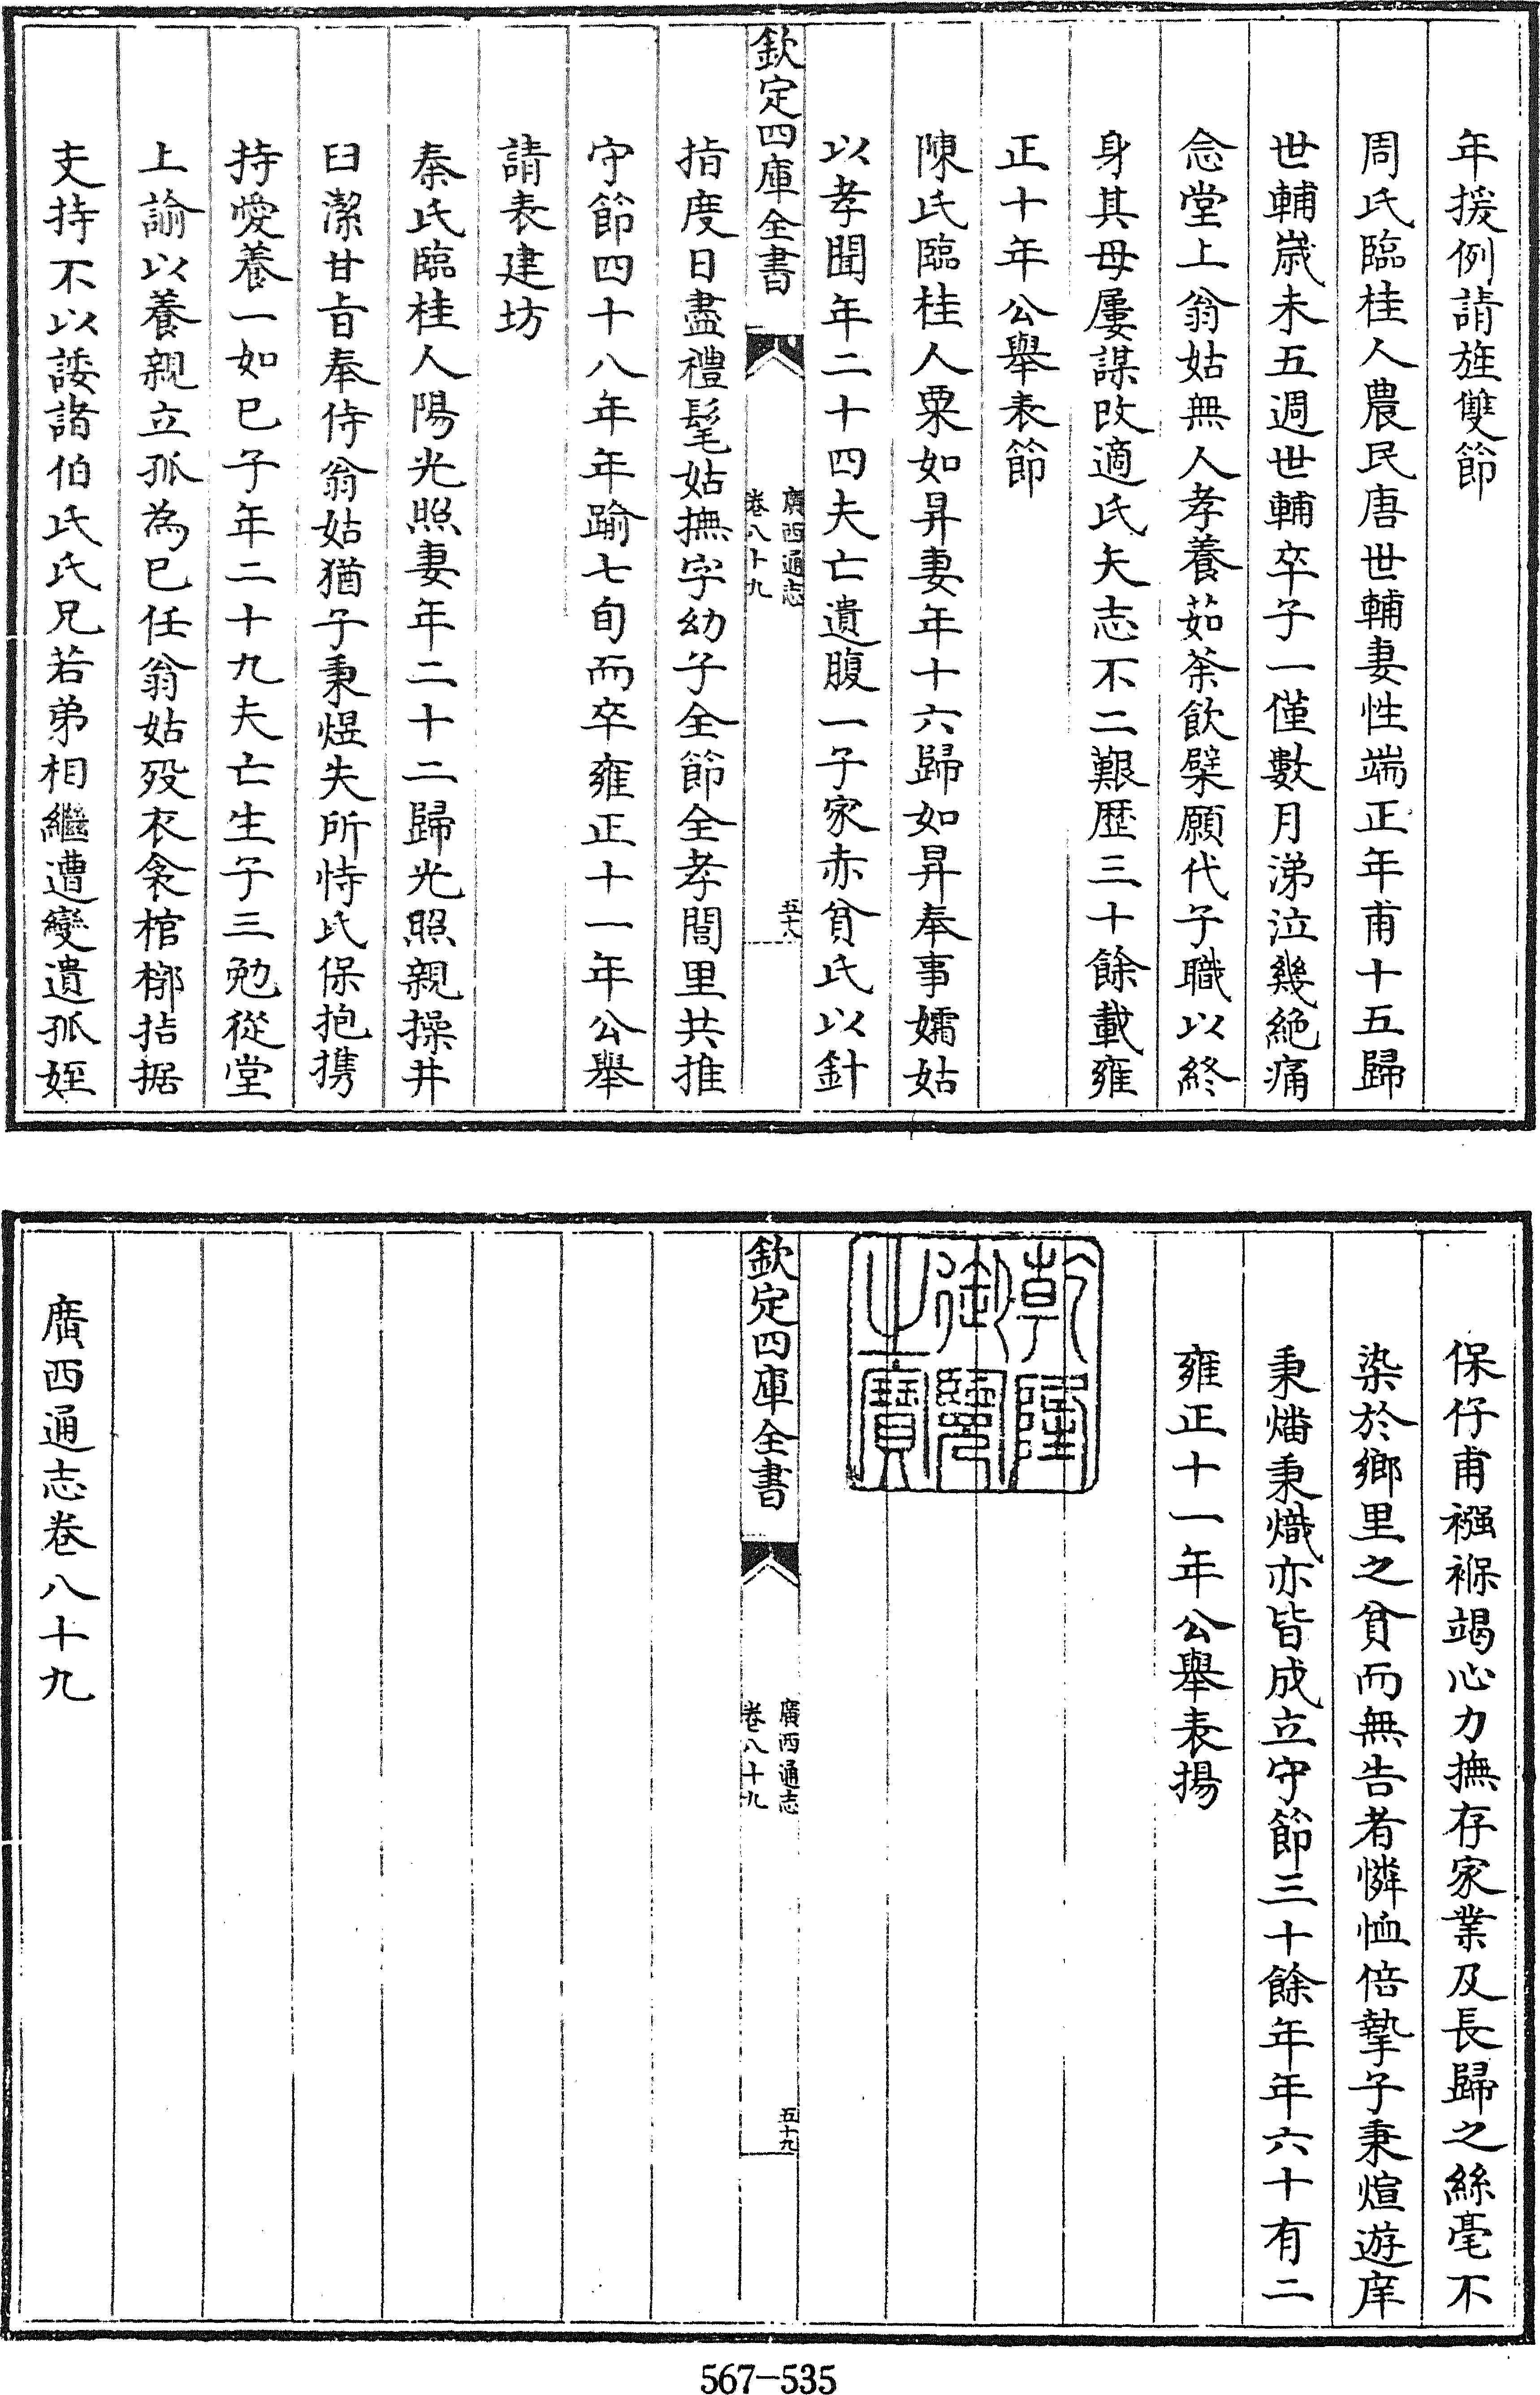 年援例請旌雙節
周氏臨桂人農民唐世輔妻性端正年甫十五歸
世輔嵗未五週世輔卒子一僅數月涕泣幾絶痛
念堂上翁姑無人孝養茹荼飲櫱願代子職以終
身其母屢謀改適氏矢志不二艱歴三十餘載雍
正十年公舉表節
陳氏臨桂人粟如昇妻年十六歸如昇奉事孀姑
以孝聞年二十四夫亡遺腹一子家赤貧氏以針
欽定四庫全書
廣西通志
卷八十九
五十八
指度日盡禮髦姑撫字幼子全節全孝閭里共推
守節四十八年年踰七旬而卒雍正十一年公舉
請表建坊
秦氏臨桂人陽光照妻年二十二歸光照親操井
臼潔甘旨奉侍翁姑猶子秉煜失所恃氏保抱携
持愛養一如已子年二十九夫亡生子三勉從堂
上諭以養親立孤為已任翁姑殁衣衾棺槨拮据
支持不以諉諸伯氏氏兄若弟相繼遭變遺孤姪
保仔甫襁褓竭心力撫存家業及長歸之絲毫不
染於鄉里之貧而無告者憐恤倍摯子秉煊遊庠
秉燔秉熾亦皆成立守節三十餘年年六十有二
雍正十一年公舉表揚
乾隆
御覽
之寶
欽定四庫全書
廣西通志
卷八十九
五十九
廣西通志卷八十九
567-535